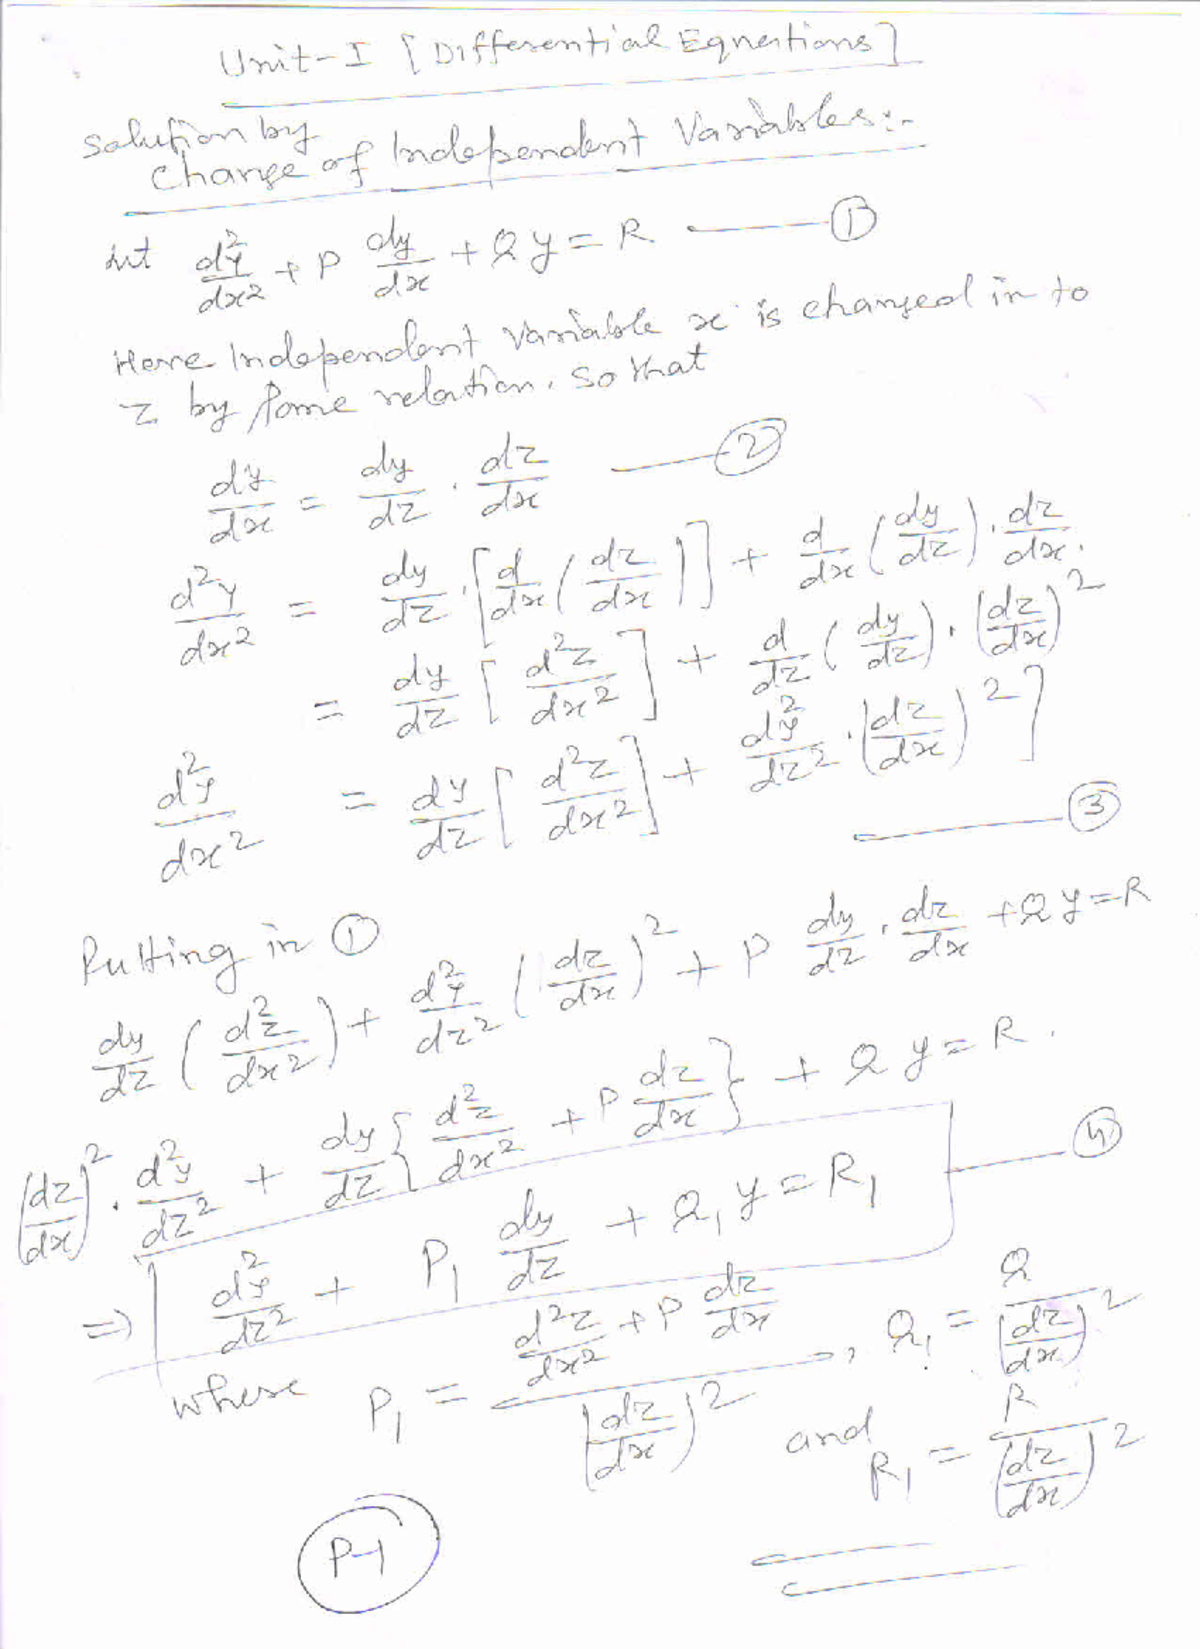 Unit-I [Differential Equations]
Solution by
Change of Independent Variables:-
Let d²y/dx² + P dy/dx + Q y = R —— ①
Here Independent variable x is changed in to
z by some relation. So that
dy/dx = dy/dz . dz/dx —— ②
d²y/dx² = dy/dz . [d/dx (dz/dx)] + d/dx (dy/dz) . dz/dx.
= dy/dz [d²z/dx²] + d/dz (dy/dz) . (dz/dx)²
d²y/dx² = dy/dz [d²z/dx²] + d²y/dz² . (dz/dx)²]
—— ③
Putting in ①
dy/dz (d²z/dx²) + d²y/dz² (dz/dx)² + P dy/dz . dz/dx + Q y = R
(dz/dx)² . d²y/dz² + dy/dz {d²z/dx² + P dz/dx} + Q y = R .
⇒ d²y/dz² + P₁ dy/dz + Q₁ y = R₁ —— ④
where P₁ = (d²z/dx² + P dz/dx)/(dz/dx)² , Q₁ = Q/(dz/dx)²
and R₁ = R/(dz/dx)²
P-1